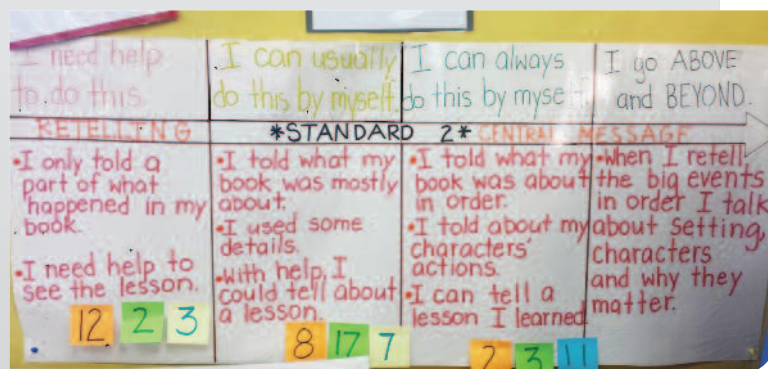 I need help
to do this.
I can usually
do this by myself.
I can always
do this by myself.
I go ABOVE
and BEYOND.
RETELLING *STANDARD 2* CENTRAL MESSAGE
•I only told a
part of what
happened in my
book.
•I need help to
see the lesson.
12 2 3
•I told what my
book was mostly
about.
•I used some
details.
•With help, I
could tell about
a lesson.
8 17 7
•I told what my
book was about
in order.
•I told about my
characters'
actions.
•I can tell a
lesson I learned
2 3 11
•When I retell
the big events
in order I talk
about setting,
characters
and why they
matter.